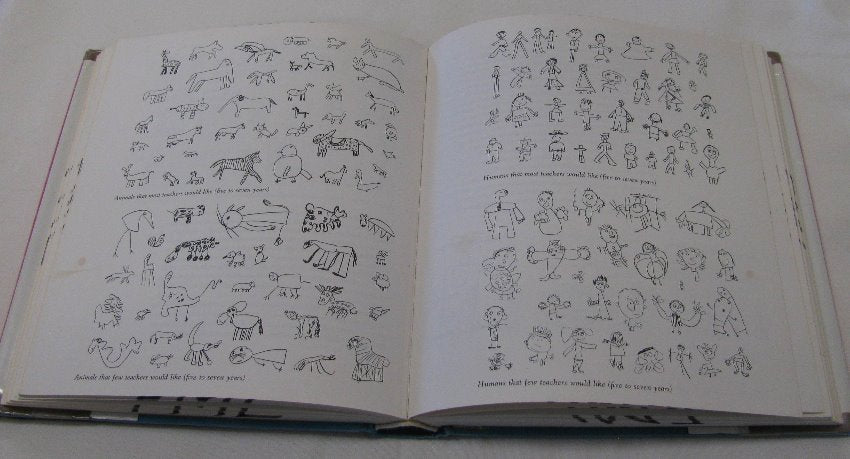 Animals that most teachers would like (five to seven years)
Animals that few teachers would like (five to seven years)
Humans that most teachers would like (five to seven years)
Humans that few teachers would like (five to seven years)